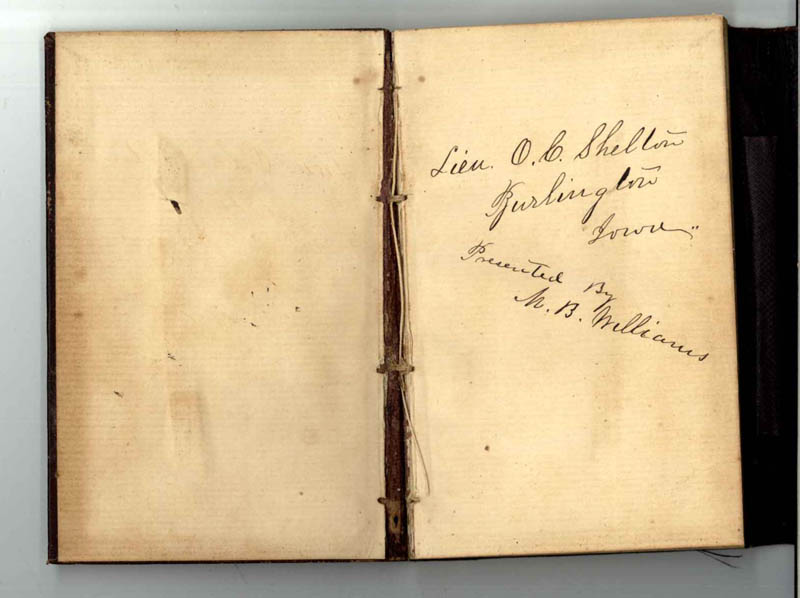 Lieu. O. C. Shelton
Burlington
Iowa
Presented By
M. B. Williams